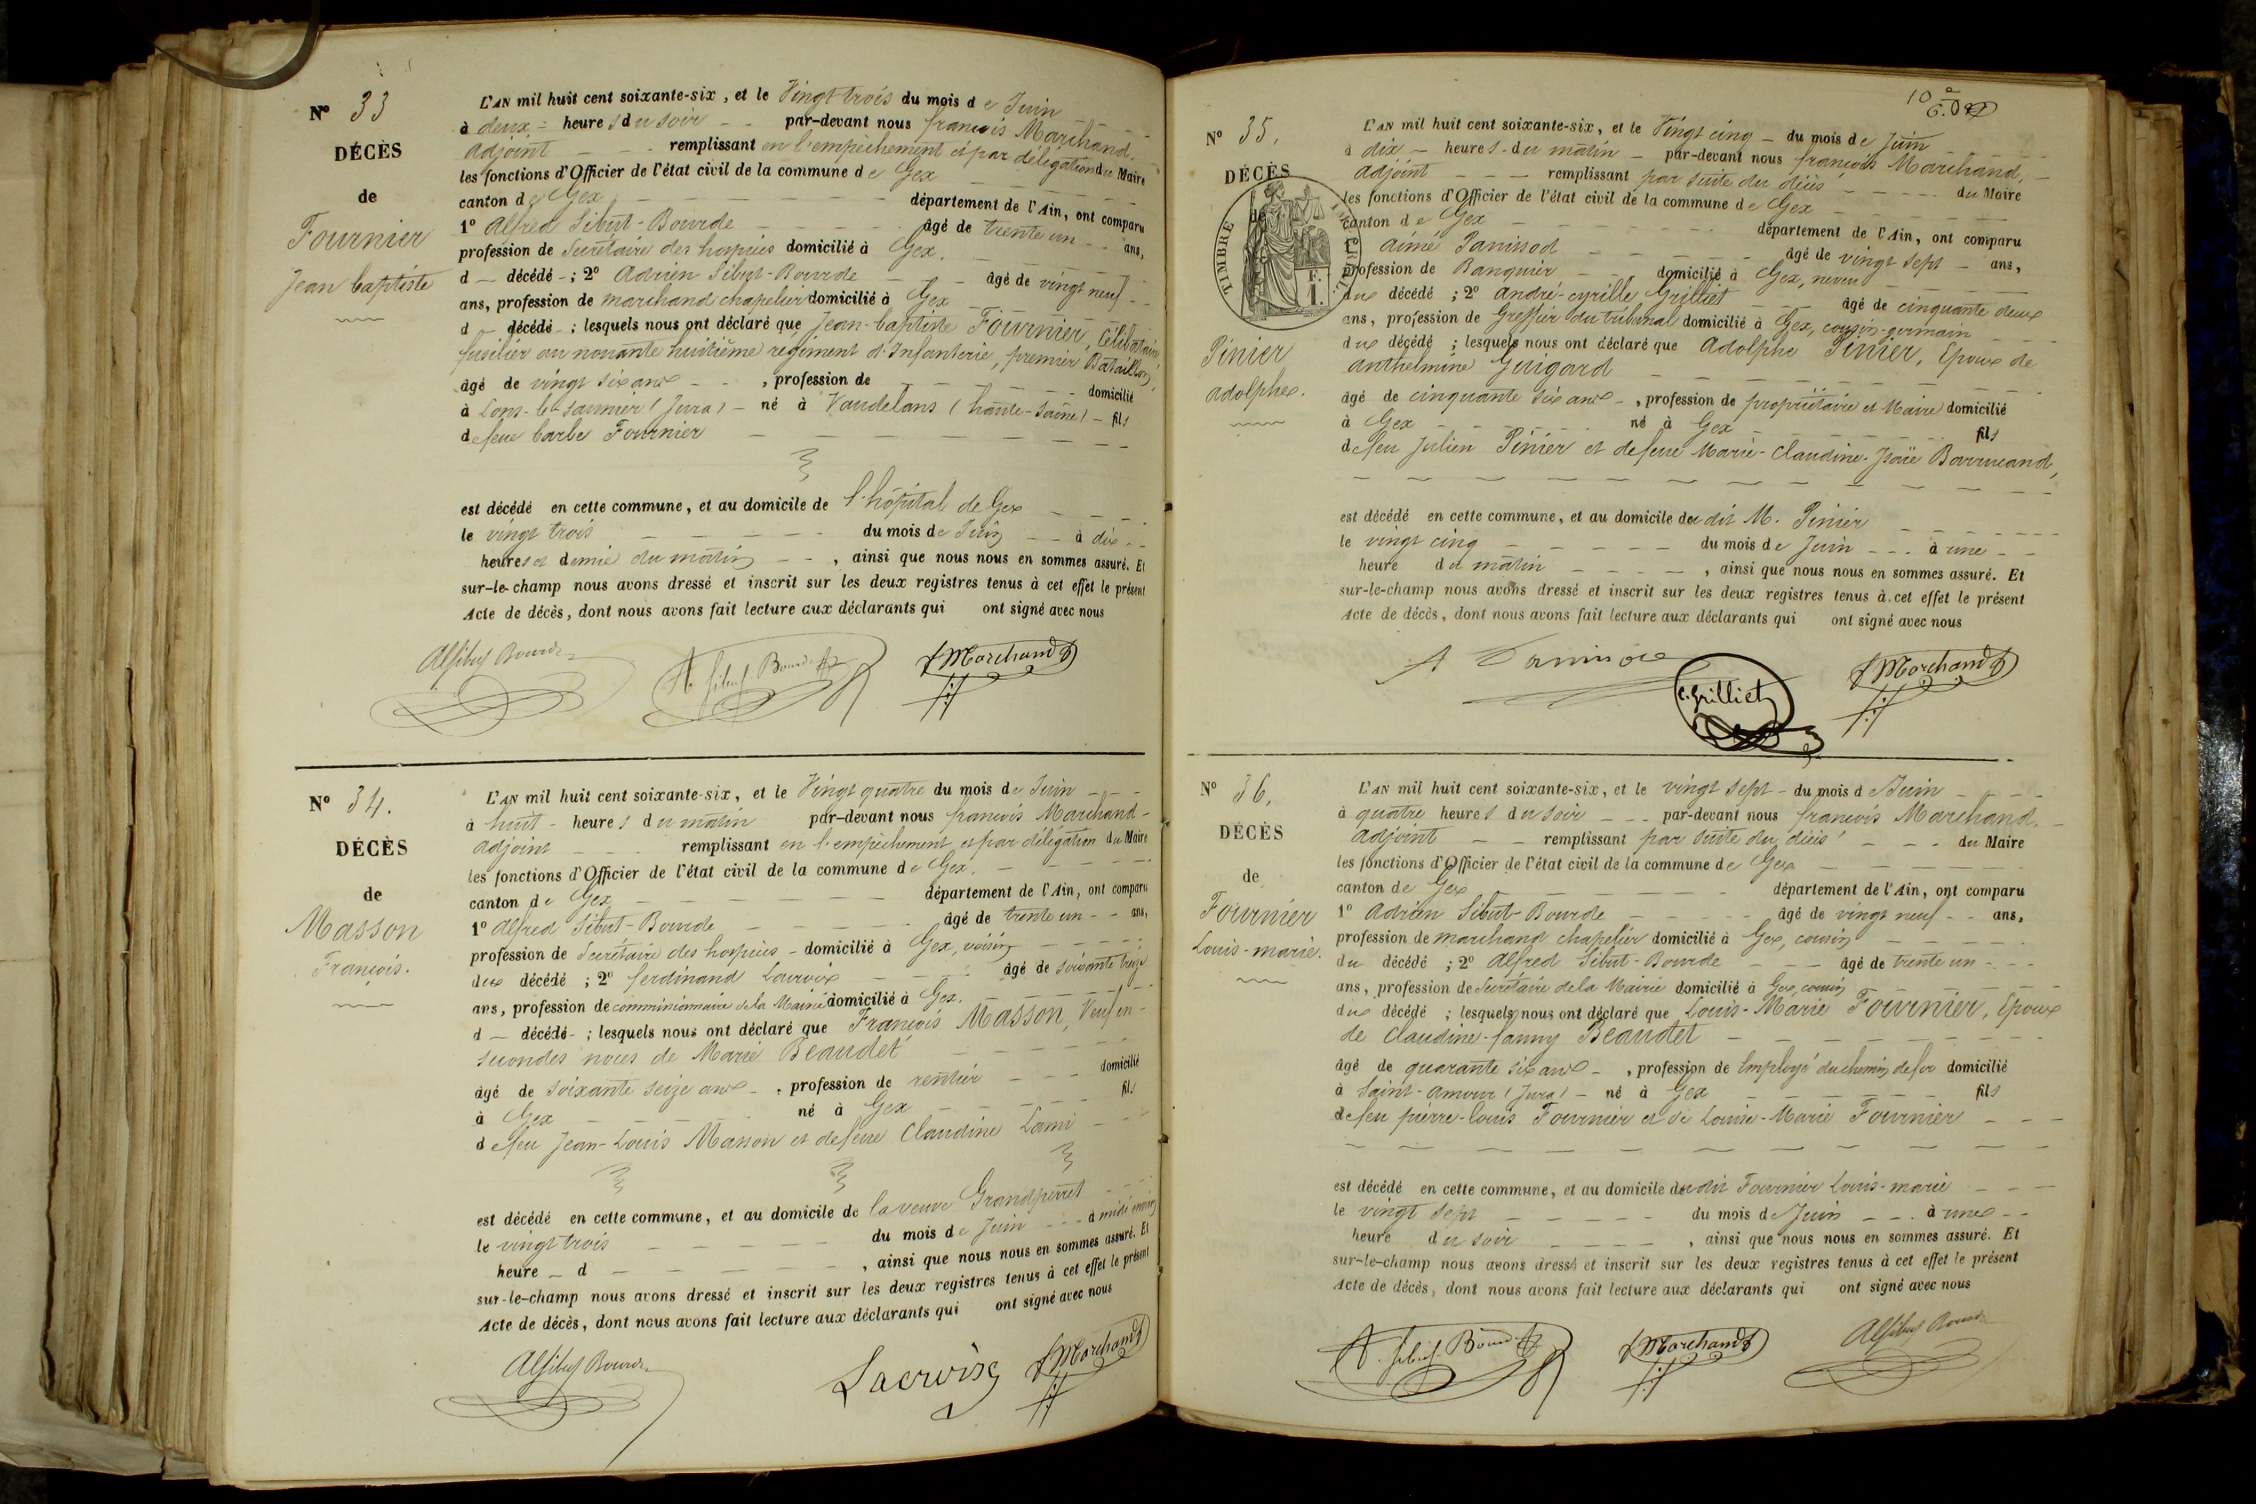 N° 33
DÉCÈS
de
Fournier
Jean baptiste
L'AN mil huit cent soixante-six, et le Vingt trois du mois de Juin
à deux heures du soir par-devant nous françois Marchand
adjoint remplissant en l'empêchement et par délégation du Maire
les fonctions d'Officier de l'état civil de la commune de Gex
canton de Gex département de l'Ain, ont comparu
1° Alfred Sibut-Bourde âgé de trente un ans,
profession de Secrétaire des hospices domicilié à Gex.
d décédé ; 2° Adrien Sibut-Bourde âgé de vingt neuf
ans, profession de marchand chapelier domicilié à Gex
d décédé ; lesquels nous ont déclaré que Jean-baptiste Fournier, Célibataire
fusilier au nonante huitième régiment d'Infanterie, premier Bataillon,
âgé de vingt six ans , profession de domicilié
à Lons-le-saunier (Jura) né à Vaudelans (haute-Saône) fils
de feue barbe Fournier
est décédé en cette commune, et au domicile de l'hôpital de Gex
le vingt trois du mois de Juin à dix
heures et demie du matin , ainsi que nous nous en sommes assuré. Et
sur-le-champ nous avons dressé et inscrit sur les deux registres tenus à cet effet le présent
Acte de décès, dont nous avons fait lecture aux déclarants qui ont signé avec nous
Alf Sibut Bourde
A. Sibut Bourde
f Marchand
N° 34.
DÉCÈS
de
Masson
François.
L'AN mil huit cent soixante-six, et le Vingt quatre du mois de Juin
à huit heures du matin par-devant nous françois Marchand
adjoint remplissant en l'empêchement et par délégation du Maire
les fonctions d'Officier de l'état civil de la commune de Gex.
canton de Gex département de l'Ain, ont comparu
1° Alfred Sibut-Bourde âgé de trente un ans,
profession de Secrétaire des hospices domicilié à Gex, voisin
du décédé ; 2° ferdinand Lacroix âgé de soixante treize
ans, profession de commissionnaire de la Mairie domicilié à Gex.
d décédé ; lesquels nous ont déclaré que François Masson, Veuf en
secondes noces de Marie Beaudet
âgé de soixante seize ans , profession de rentier domicilié
à Gex né à Gex fils
de feu Jean-Louis Masson et de feue Claudine Lami
est décédé en cette commune, et au domicile de la veuve Grandperret
le vingt trois du mois de Juin à midi
heure d , ainsi que nous nous en sommes assuré. Et
sur-le-champ nous avons dressé et inscrit sur les deux registres tenus à cet effet le présent
Acte de décès, dont nous avons fait lecture aux déclarants qui ont signé avec nous
Alf Sibut Bourde
Lacroix
f Marchand
10e
N° 35.
DÉCÈS
de
TIMBRE IMPÉRIAL
F.
1.
Pinier
adolphe.
L'AN mil huit cent soixante-six, et le Vingt cinq du mois de Juin
à dix heures du matin par-devant nous françois Marchand,
adjoint remplissant par suite du décès du Maire
les fonctions d'Officier de l'état civil de la commune de Gex
canton de Gex département de l'Ain, ont comparu
1° aimé Panissod âgé de vingt sept ans,
profession de Banquier domicilié à Gex, neveu
du décédé ; 2° andré-cyrille Grilliet âgé de cinquante deux
ans, profession de Greffier du tribunal domicilié à Gex, cousin-germain
du décédé ; lesquels nous ont déclaré que Adolphe Pinier, Epoux de
anthelmine Guigard
âgé de cinquante six ans , profession de propriétaire et Maire domicilié
à Gex né à Gex fils
de feu Julien Pinier et de feue Marie-Claudine-Josèe Barrucand,
est décédé en cette commune, et au domicile du dit M. Pinier
le vingt cinq du mois de Juin à une
heure du matin , ainsi que nous nous en sommes assuré. Et
sur-le-champ nous avons dressé et inscrit sur les deux registres tenus à cet effet le présent
Acte de décès, dont nous avons fait lecture aux déclarants qui ont signé avec nous
A Panissod
C. Grilliet
f Marchand
N° 36.
DÉCÈS
de
Fournier
Louis-marie.
L'AN mil huit cent soixante-six, et le vingt sept du mois de Juin
à quatre heures du soir par-devant nous françois Marchand.
adjoint remplissant par suite du décès du Maire
les fonctions d'Officier de l'état civil de la commune de Gex
canton de Gex département de l'Ain, ont comparu
1° Adrien Sibut-Bourde âgé de vingt neuf ans,
profession de marchand chapelier domicilié à Gex, cousin
du décédé ; 2° Alfred Sibut-Bourde âgé de trente un
ans, profession de Secrétaire de la Mairie domicilié à Gex, cousin
du décédé ; lesquels nous ont déclaré que Louis-Marie Fournier, Epoux
de Claudine-fanny Beaudet
âgé de quarante six ans , profession de Employé du chemin de fer domicilié
à Saint-Amour (Jura) né à Gex fils
de feu pierre-louis Fournier et de Louise-Marie Fournier
est décédé en cette commune, et au domicile du dit Fournier Louis-marie
le vingt sept du mois de Juin à une
heure du soir , ainsi que nous nous en sommes assuré. Et
sur-le-champ nous avons dressé et inscrit sur les deux registres tenus à cet effet le présent
Acte de décès, dont nous avons fait lecture aux déclarants qui ont signé avec nous
A. Sibut Bourde
f Marchand
Alf Sibut Bourde